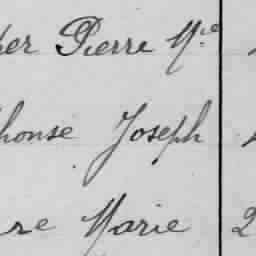 er Pierre Mie
honse Joseph
re Marie 2